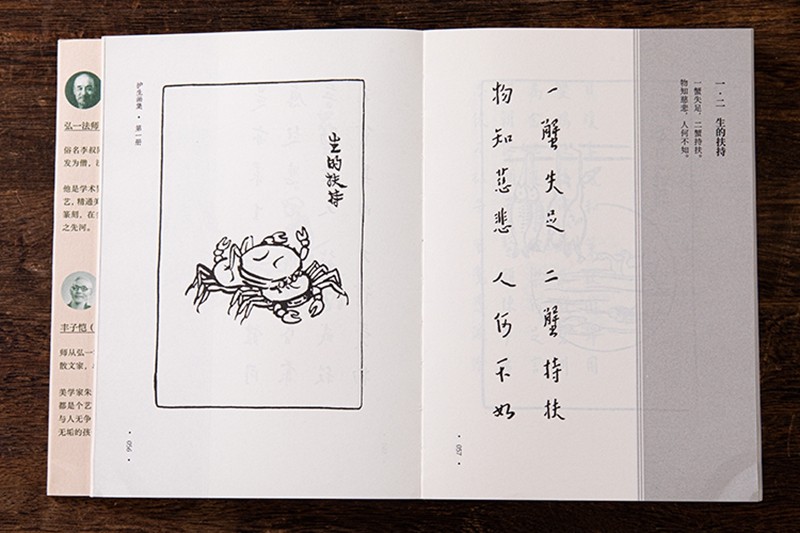 弘一法师
俗名李叔
发为僧,
他是学术
艺,精通美
篆刻,在
之先河。
丰子恺(
师从弘一
散文家,
美学家朱
都是个艺
与人无争
无垢的孩
护生画集·第一册
生的扶持
·056·
一蟹失足 二蟹持扶
物知慈悲 人何不如
·057·
一·二 生的扶持
一蟹失足,二蟹持扶。
物知慈悲,人何不如。